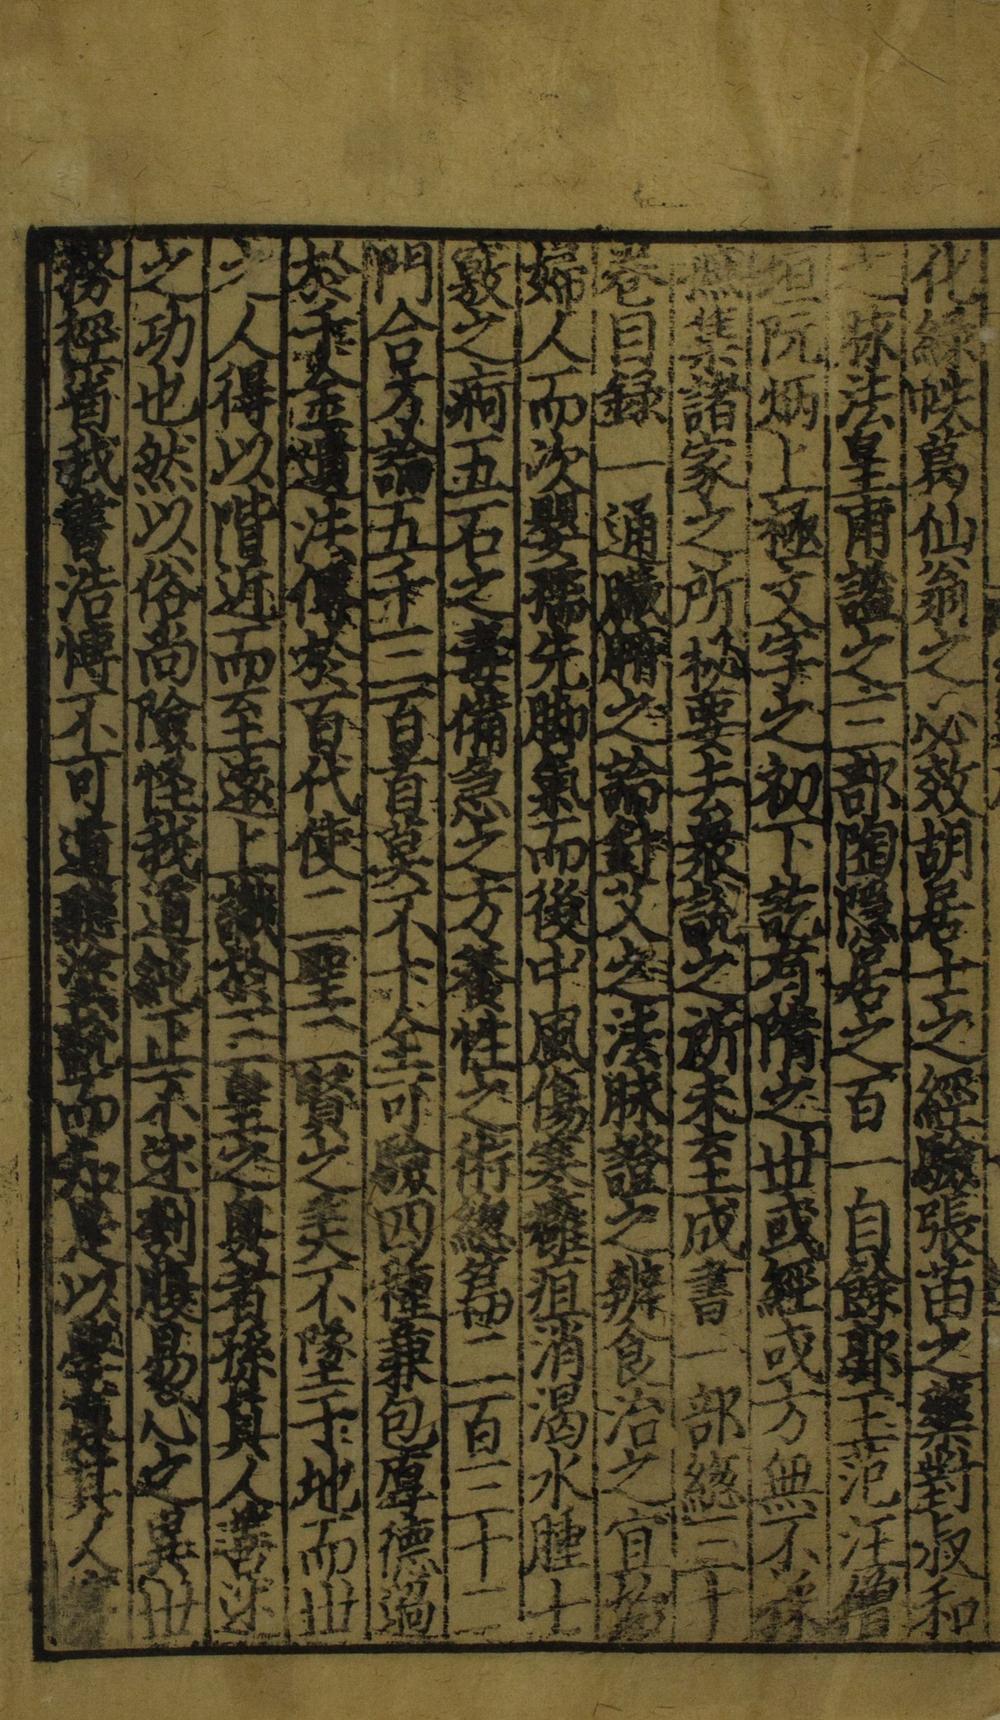 化綠帙葛仙翁之必效胡居士之經驗張苗之藥對叔和
之脉法皇甫謐之三部陶隱居之百一自餘郭玉范汪僧
垣阮炳上極文字之初下訖有隋之世或經或方無不採
集諸家之所秘要去衆說之所未至成書一部總三十
卷目録一通臟腑之論針艾之法脉證之辨食治之宜始
婦人而次嬰孺先脚氣而後中風傷寒癰疽消渴水腫七
竅之痾五石之毒備急之方養性之術總篇二百三十二
門合方論五千三百首莫不十全可驗四種兼包厚德過
於千金遺法傳於百代使二聖二賢之美不墜于地而世
之人得以階近而至遠上識於三皇之奥者孫真人善述
之功也然以俗尚險怪我道純正不述刳腹易心之異世
務徑省我書浩博不可道聽塗說而知是以學寡其人